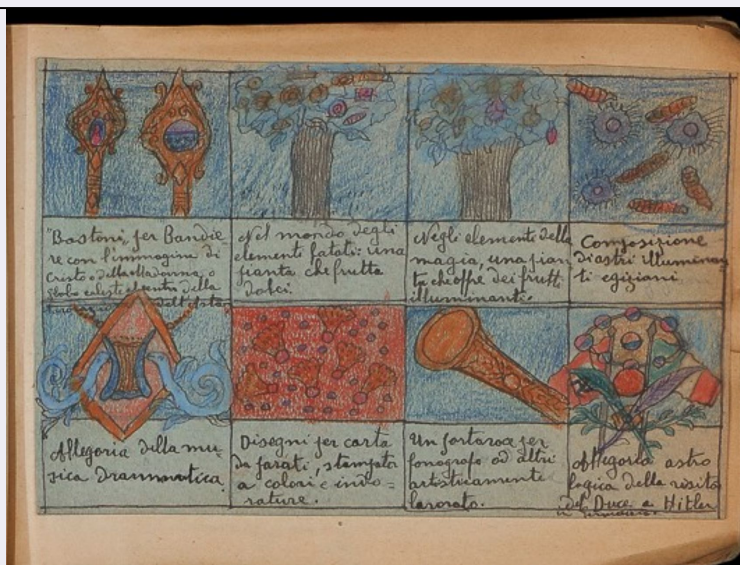 "Bastoni per Bandie-
re con l'immagine di
Cristo o della Madonna, o
globo celeste al centro della
dell'asta
Nel mondo degli
elementi fatati: una
pianta che frutta
dolci.
Negli elementi della
magia, una pian
ta che offre dei frutti
illuminanti.
Composizione
di astri illuminan
ti egiziani.
Allegoria della mu-
sica Drammatica.
Disegni per carta
da parati, stampata
a colori e
rature.
Un portavoce per
fonografo od altri
artisticamente
lavorato.
Allegoria astro
logica della visita
del Duce a Hitler
in Germania.